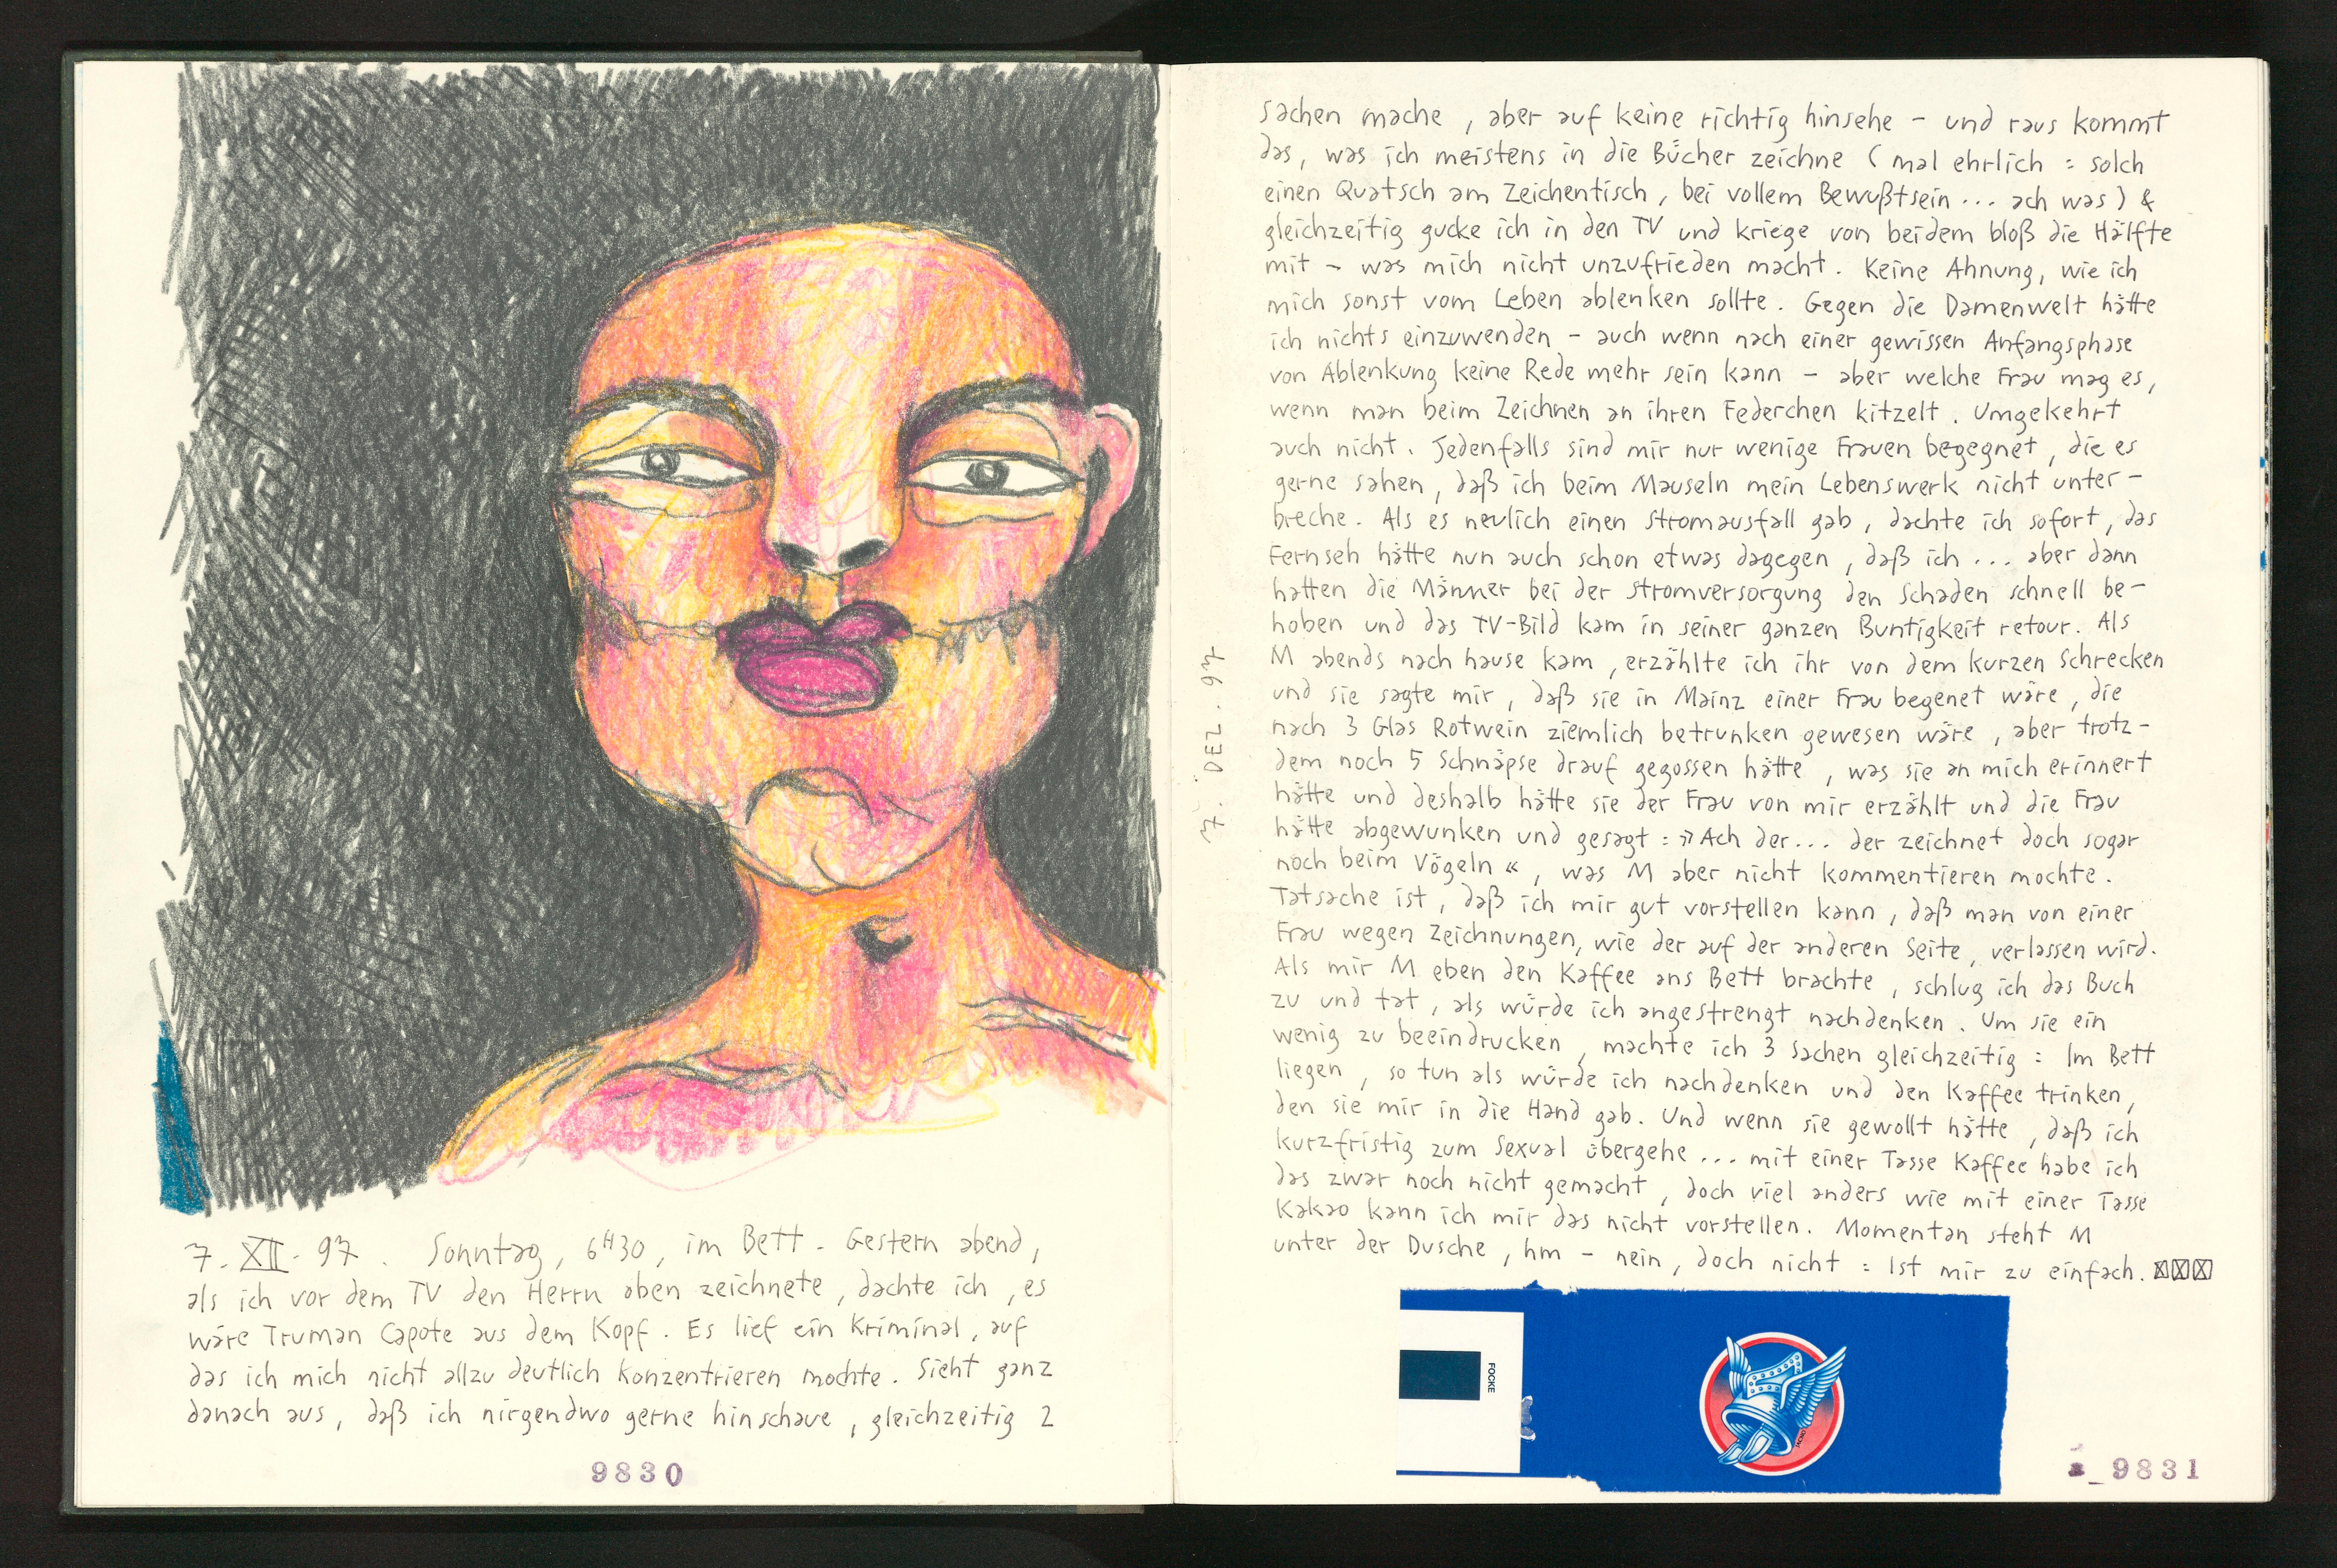 7. XII. 97. Sonntag, 6H30, im Bett. Gestern abend,
als ich vor dem TV den Herrn oben zeichnete, dachte ich, es
wäre Truman Capote aus dem Kopf. Es lief ein Kriminal, auf
das ich mich nicht allzu deutlich konzentrieren mochte. Sieht ganz
danach aus, daß ich nirgendwo gerne hinschaue, gleichzeitig 2
9830
Sachen mache, aber auf keine richtig hinsehe – und raus kommt
das, was ich meistens in die Bücher zeichne (mal ehrlich: solch
einen Quatsch am Zeichentisch, bei vollem Bewußtsein... ach was) &
gleichzeitig gucke ich in den TV und kriege von beidem bloß die Hälfte
mit – was mich nicht unzufrieden macht. Keine Ahnung, wie ich
mich sonst vom Leben ablenken sollte. Gegen die Damenwelt hätte
ich nichts einzuwenden – auch wenn nach einer gewissen Anfangsphase
von Ablenkung keine Rede mehr sein kann – aber welche Frau mag es,
wenn man beim Zeichnen an ihren Federchen kitzelt. Umgekehrt
auch nicht. Jedenfalls sind mir nur wenige Frauen begegnet, die es
gerne sahen, daß ich beim Mauseln mein Lebenswerk nicht unter-
breche. Als es neulich einen Stromausfall gab, dachte ich sofort, das
Fernseh hätte nun auch schon etwas dagegen, daß ich ... aber dann
hatten die Männer bei der Stromversorgung den Schaden schnell be-
hoben und das TV-Bild kam in seiner ganzen Buntigkeit retour. Als
M abends nach hause kam, erzählte ich ihr von dem kurzen Schrecken
und sie sagte mir, daß sie in Mainz einer Frau begenet wäre, die
nach 3 Glas Rotwein ziemlich betrunken gewesen wäre, aber trotz-
dem noch 5 Schnäpse drauf gegossen hätte, was sie an mich erinnert
hätte und deshalb hätte sie der Frau von mir erzählt und die Frau
hätte abgewunken und gesagt: »Ach der... der zeichnet doch sogar
noch beim Vögeln«, was M aber nicht kommentieren mochte.
Tatsache ist, daß ich mir gut vorstellen kann, daß man von einer
Frau wegen Zeichnungen, wie der auf der anderen Seite, verlassen wird.
Als mir M eben den Kaffee ans Bett brachte, schlug ich das Buch
zu und tat, als würde ich angestrengt nachdenken. Um sie ein
wenig zu beeindrucken, machte ich 3 Sachen gleichzeitig: Im Bett
liegen, so tun als würde ich nachdenken und den Kaffee trinken,
den sie mir in die Hand gab. Und wenn sie gewollt hätte, daß ich
kurzfristig zum Sexual übergehe ... mit einer Tasse Kaffee habe ich
das zwar noch nicht gemacht, doch viel anders wie mit einer Tasse
Kakao kann ich mir das nicht vorstellen. Momentan steht M
unter der Dusche, hm – nein, doch nicht: Ist mir zu einfach.
7. DEZ. 97
FOCKE
9831